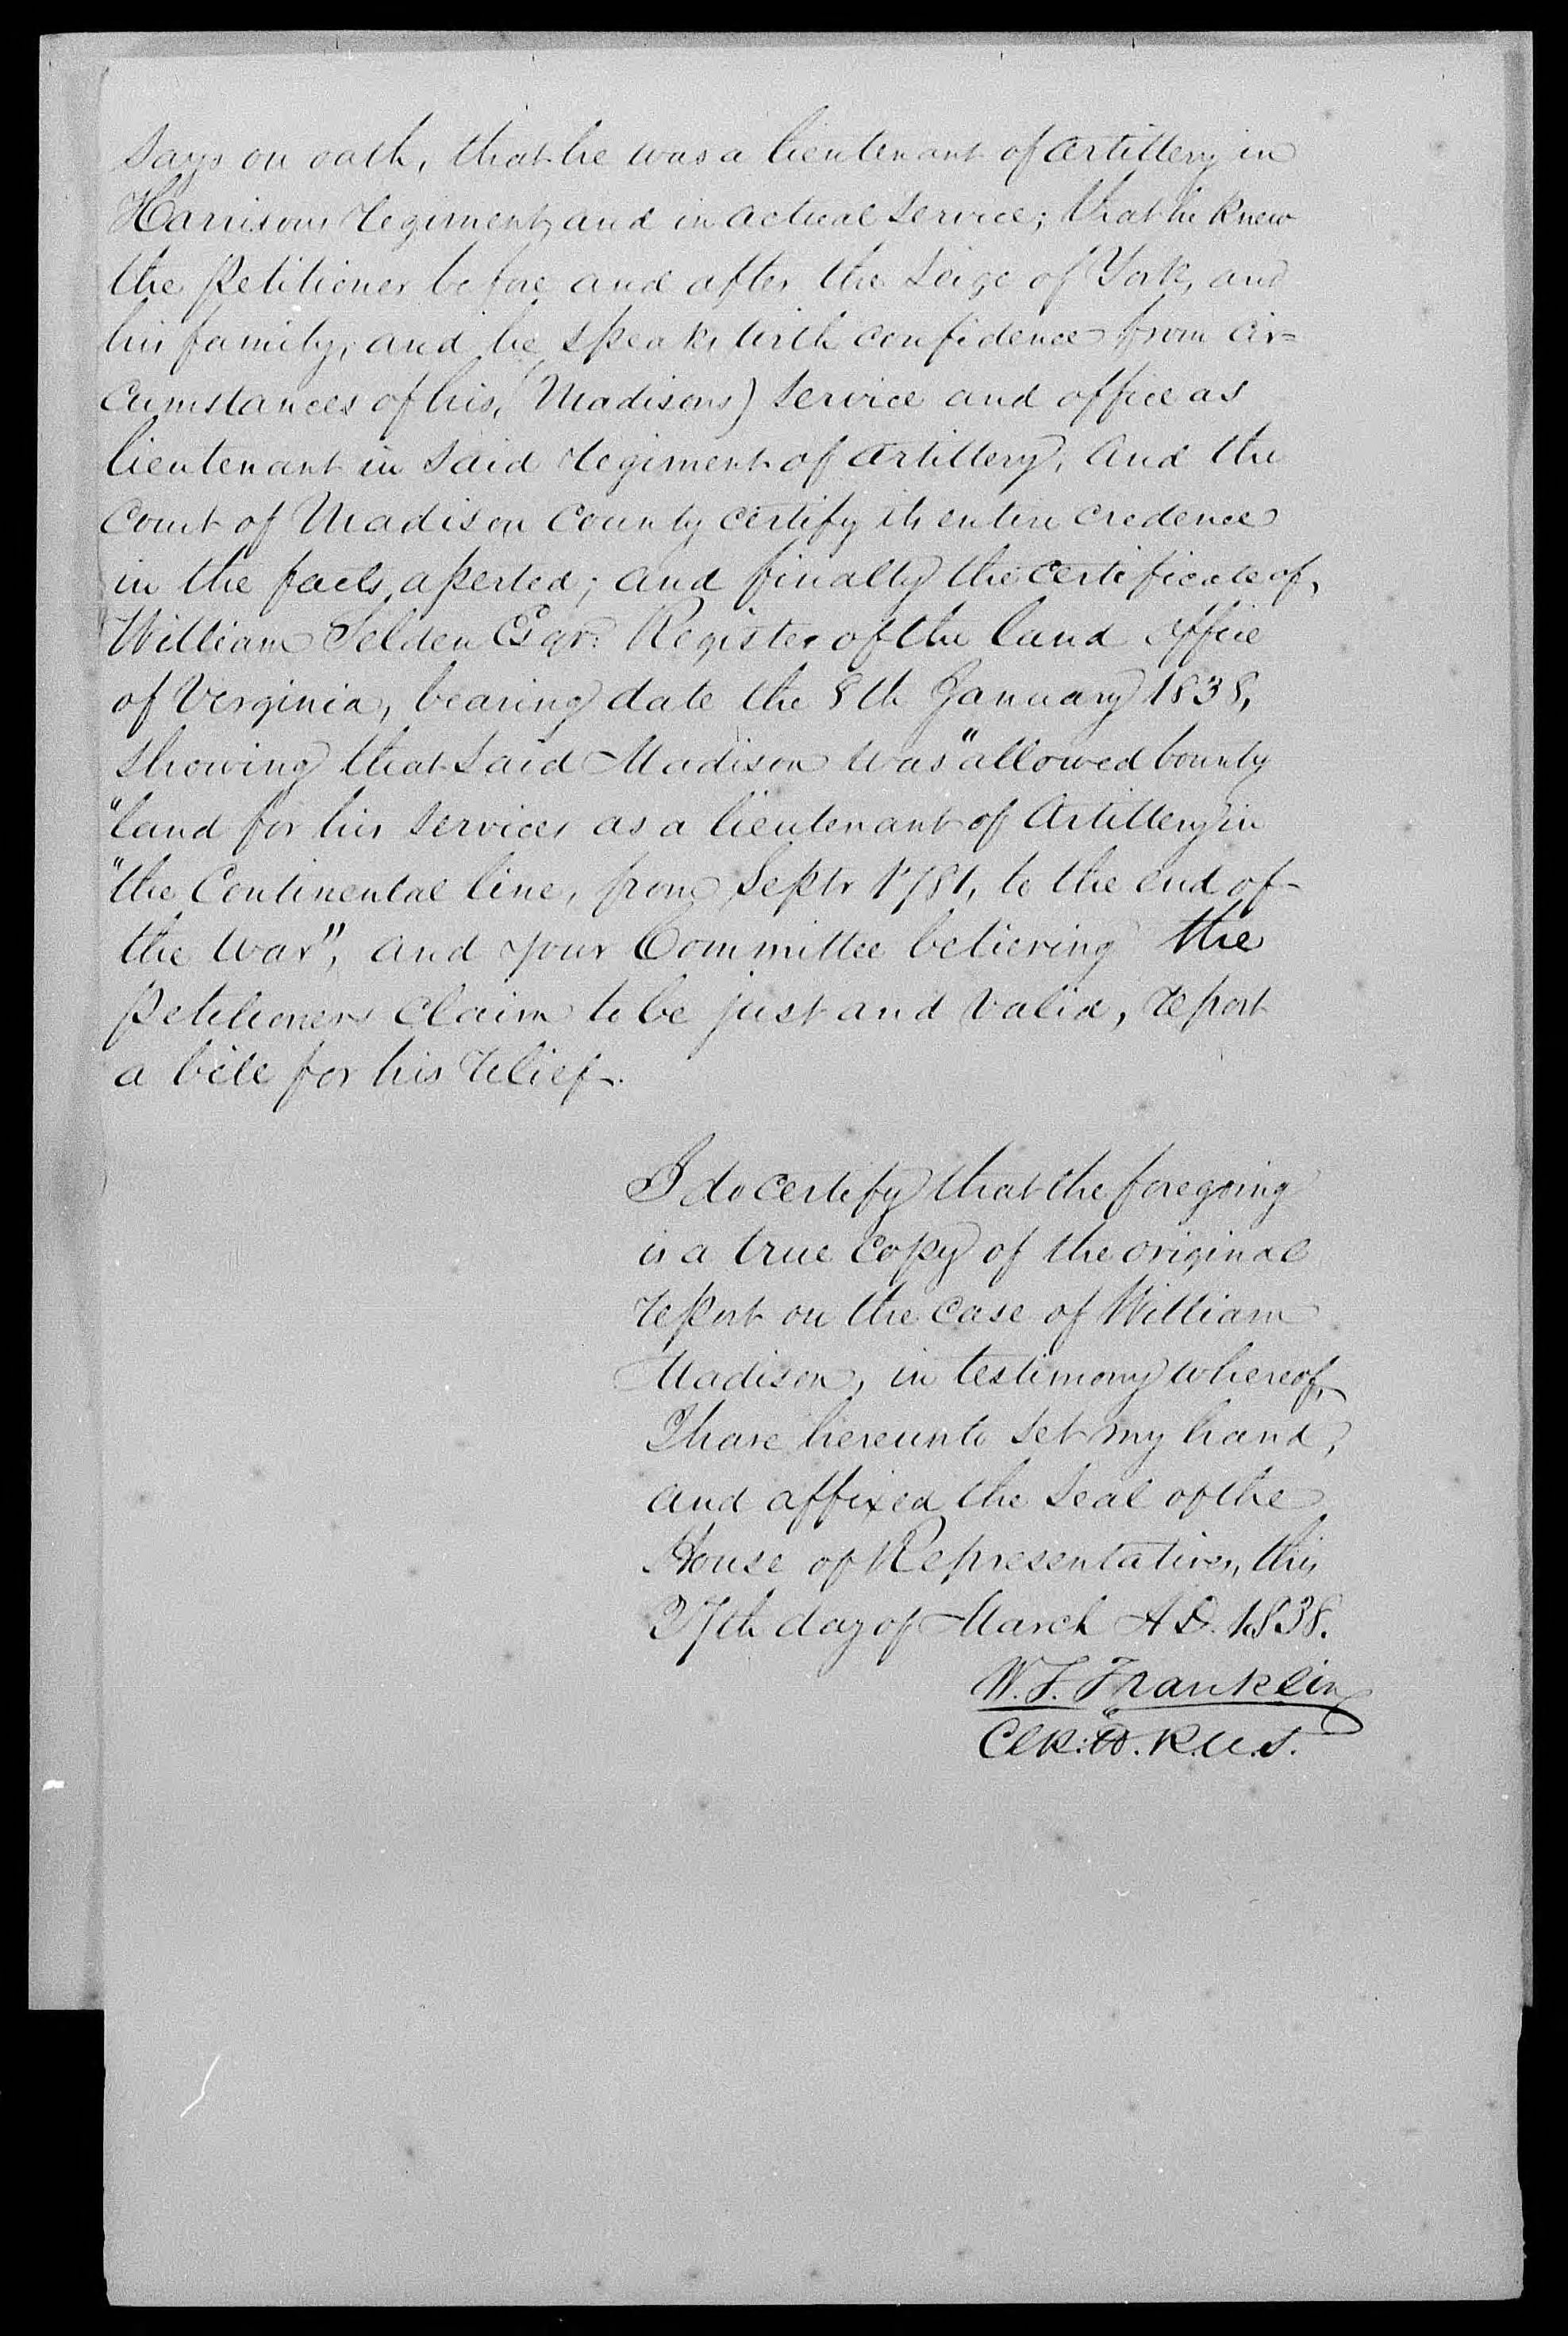 says on oath, that he was a lieutenant of artillery in
Harrisons regiment, and in actual service; that he knew
the petitioner before and after the seige of York, and
his family, and he speaks with confidence from cir=
cumstances of his, (Madisons) service and office as
lieutenant in said regiment of artillery, and the
Court of Madison County certify its entire credence
in the facts asserted; and finally the certificate of,
William Selden Esqr. Register of the land office
of Verginia, bearing date the 8th January 1838,
showing that said Madison was "allowed bounty
"land for his services as a lieutenant of Artillery in
"the Continental line, from Septr 1781, to the end of
the war", and your Committee believing the
petitioners claim to be just and valid, report
a bill for his relief.
I do certify that the foregoing
is a true copy of the original
report on the case of William
Madison, in testimony whereof,
I have hereunto set my hand,
and affixed the seal of the
House of Representatives, this
27th day of March A.D. 1838.
W. S. Franklin
Clk: Ho. R. U. S.